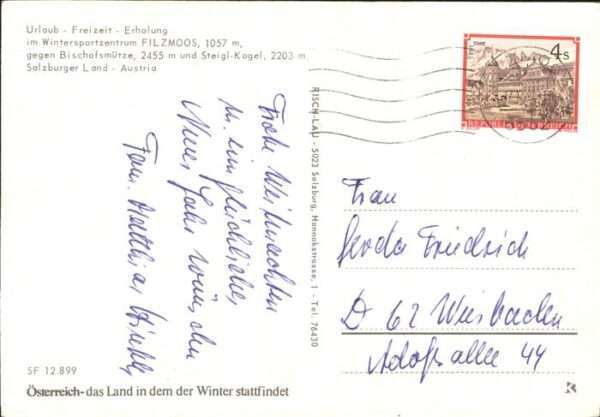 Urlaub - Freizeit - Erholung
im Wintersportzentrum FILZMOOS, 1057 m,
gegen Bischofsmütze, 2455 m und Steigl-Kogel, 2203 m
Salzburger Land - Austria
4s
REPUBLIK ÖSTERREICH
Frohe Weihnachten
u. ein glückliches
Neues Jahr wünschen
Fam. Matthias
RISCH-LAU - 5023 Salzburg, Hannakstrasse, 1 - Tel. 76430
Frau
Gerda Friedrich
D 62 Wiesbaden
Adolfsallee 44
SF 12.899
Österreich - das Land in dem der Winter stattfindet